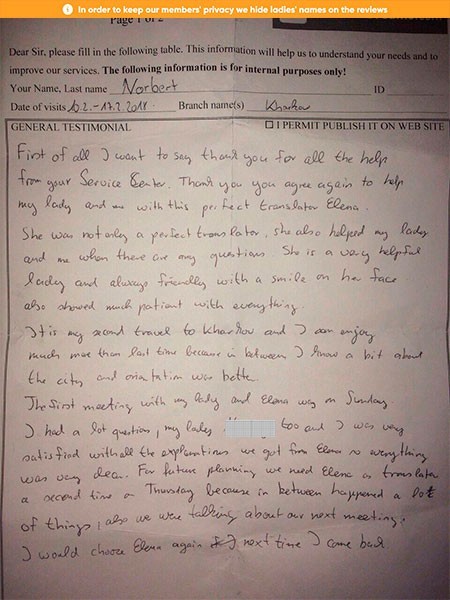 In order to keep our members' privacy we hide ladies' names on the reviews
Page 1 of 2
Dear Sir, please fill in the following table. This information will help us to understand your needs and to
improve our services. The following information is for internal purposes only!
Your Name, Last name Norbert ID
Date of visits .2.-17.2.2018 Branch name(s) Kharkov
GENERAL TESTIMONIAL ☐ I PERMIT PUBLISH IT ON WEB SITE
First of all I want to say thank you for all the help
from your Service Center. Thank you you agree again to help
my lady and me with this perfect translator Elena.
She was not only a perfect translator, she also helped my lady
and me when there are any questions. She is a very helpful
lady and always friendly with a smile on her face
also showed much patient with everything.
It is my second travel to Kharkov and I am enjoy
much more than last time because in between I know a bit about
the city and orientation was bette
The first meeting with my lady and Elena was on Sunday.
I had a lot question, my ladies too and I was very
satisfied with all the explanations we got from Elena so everything
was very clear. For future planning we need Elena as translater
a second time on Thursday because in between happened a lot
of things, also we were talking about our next meeting.
I would choose Elena again next time I come back.